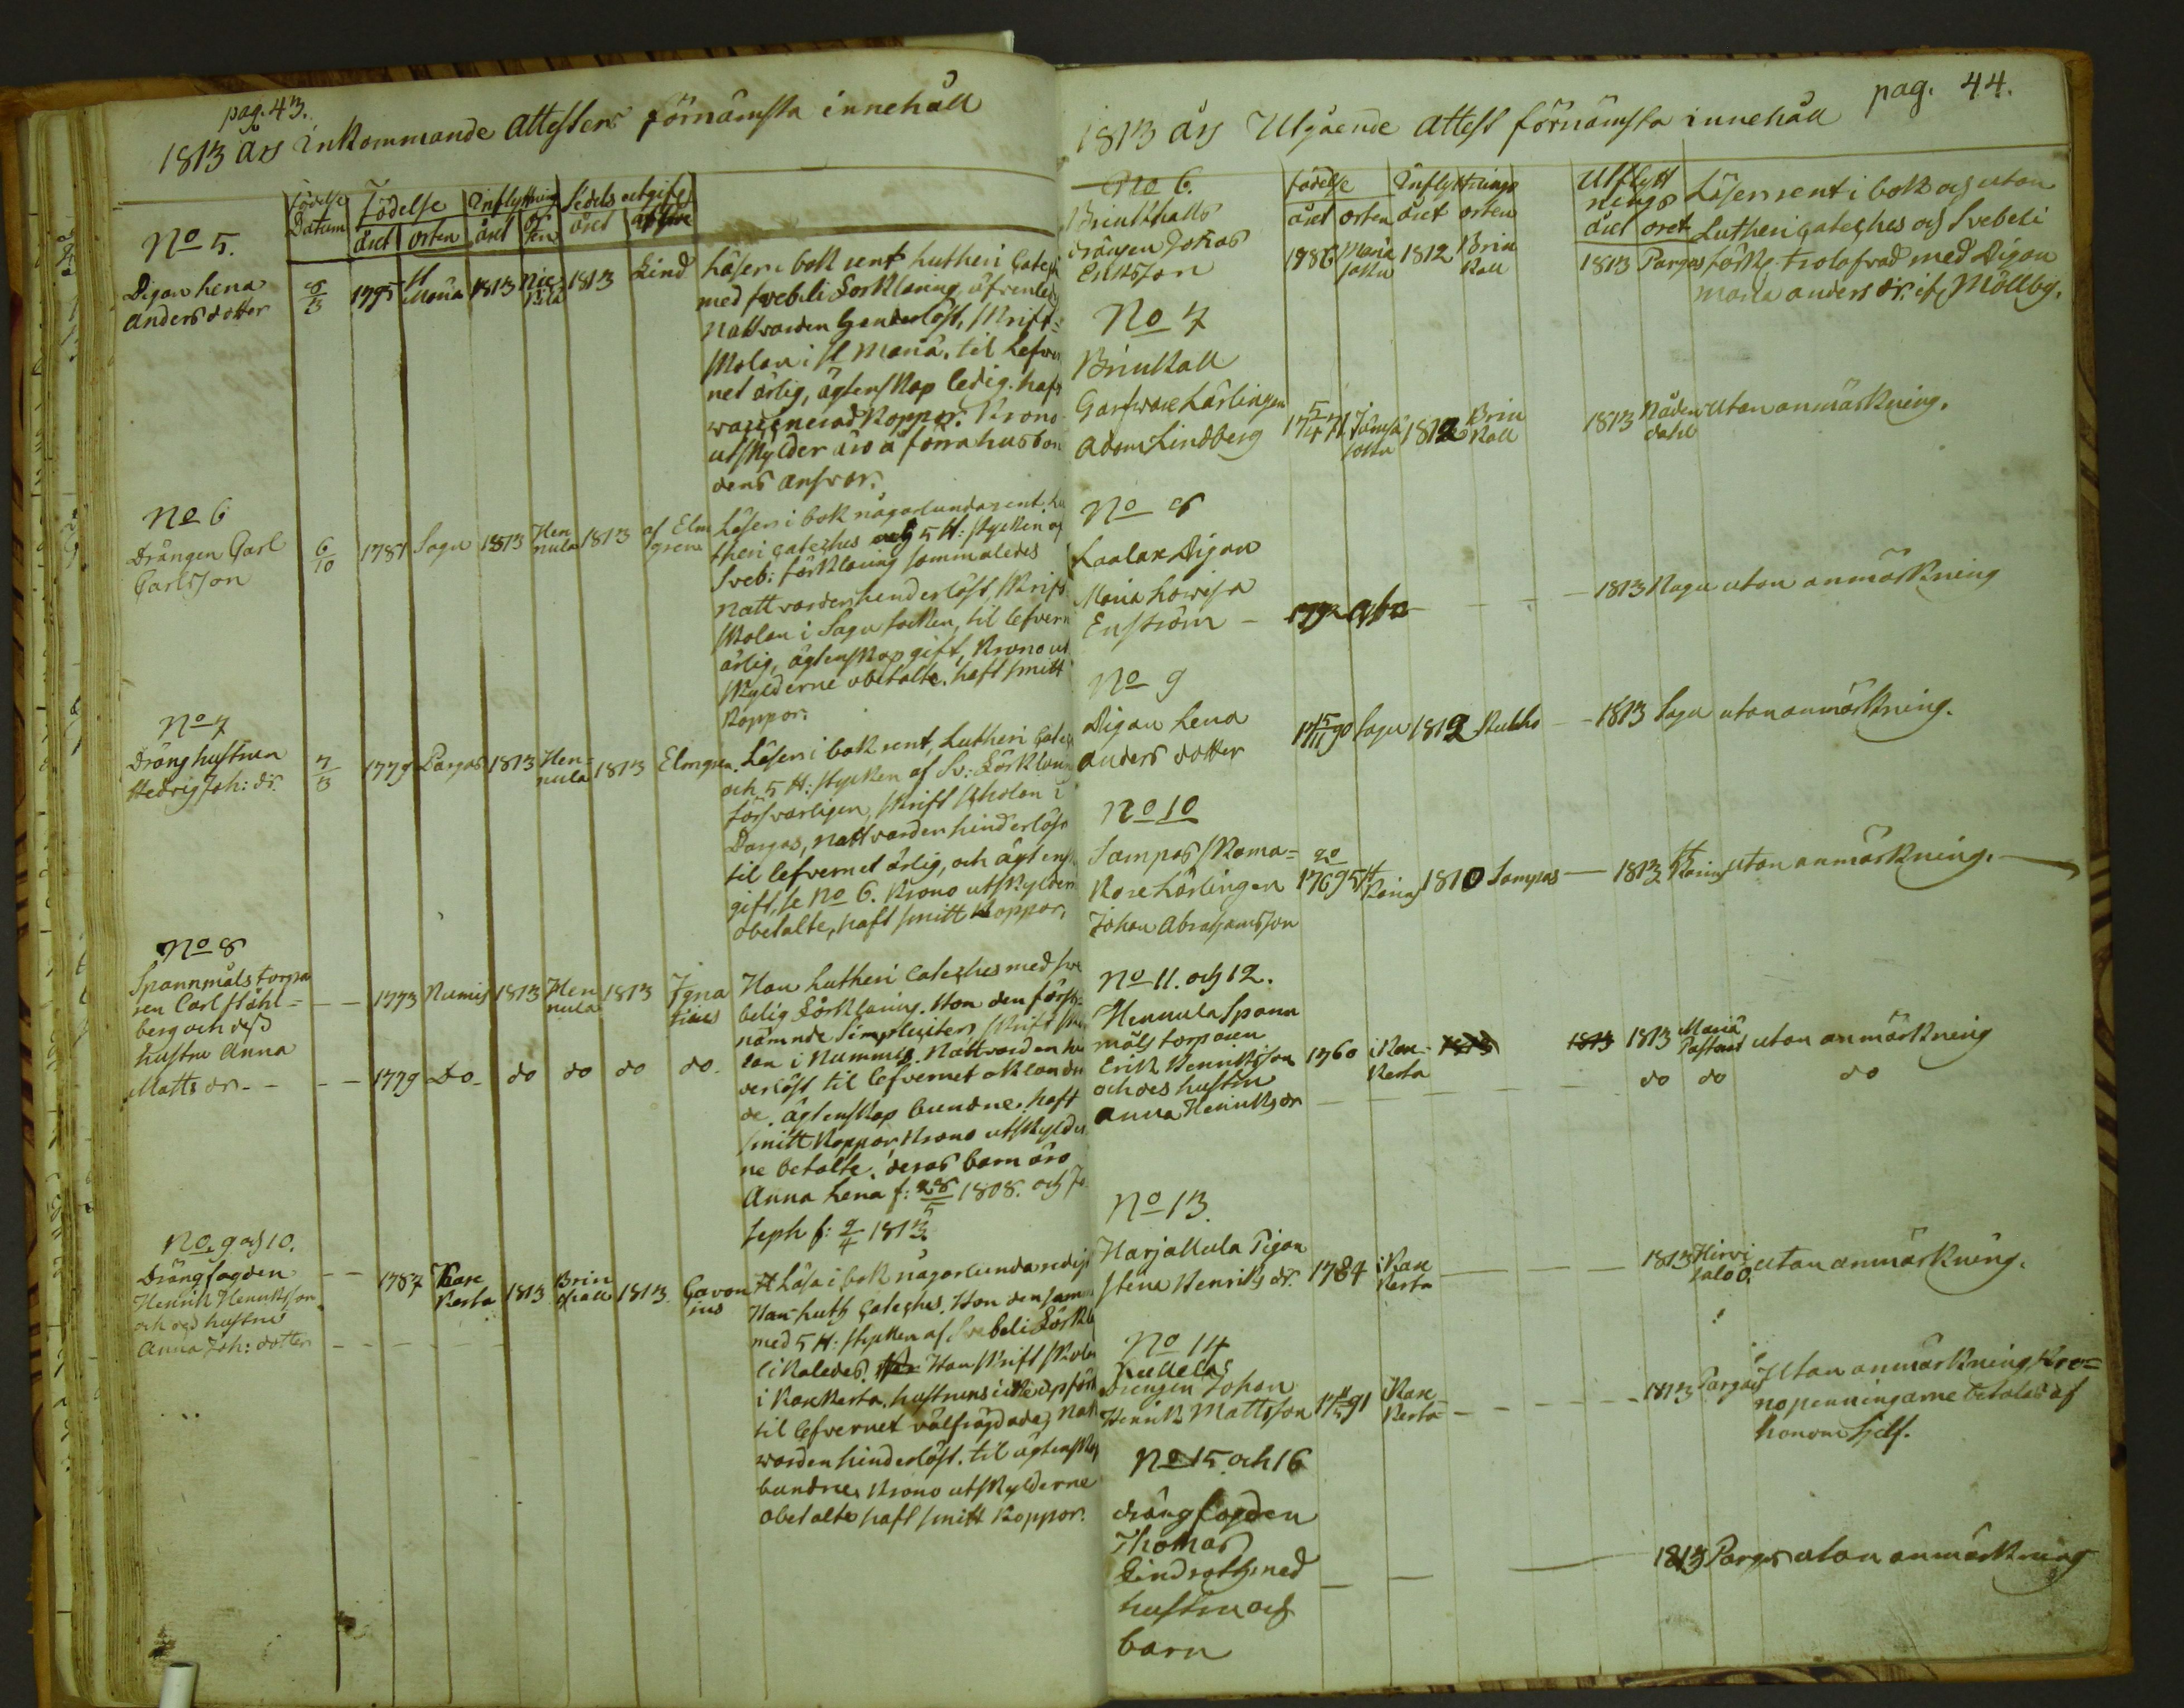 pag. 43.
1813 års Inkommande Attesters förnämsta innehåll
Födelse Datum
Födelse året orten
Inflyttning året orten
Sedels utgifv året
No 5.
Pigan Lena
Anders dotter
8/3 1795 St Maria 1813 1813 Lind
Läser i bok rent Lutheri Catech
med Svebeli Förklaring, äfvenled
Nattvarden henderlöst, Skrift=
skolan i St Maria, til Lefver
net ärlig, ägtenskap ledig. haft
vaccinerad Koppor. Krono
utskylder äro å förra husbon
dens ansvar.
No 6
Drängen Carl
Carlsson
6/10 1781 Sagu 1813 Hen nula 1813 af Elm gren
Läser i bok någorlunda rent. Lu
theri Cateches och 5 H: stycken af
Sveb: förklaring sammaledes
Nattvarden henderlöst, Skrift
skolan i Sagu socken, til lefvern
ärlig, ägtenskap gift, Krono ut
skylderne obetalte. haft smitt
Koppor.
No 7
Dräng hustrun
Hedvig Joh: dr.
7/3 1779 Pargas 1813 Hen= nula 1813 Elmgren.
Läser i bok rent, Lutheri Catech
och 5 H: stycken af Sv: Förklaring
försvarligen, Skrift Skolan i
Pargas, Nattvarden hinderlöst
til lefvernet ärlig, och ägtensk
gift, se No 6. Krono utskylderne
obetalte, haft smitt Koppor.
No 8
Spannmåls torpa
ren Carl Ståhl=
berg och des
hustru Anna
Matts dr.
- - 1773 Numis 1813 Hen nula 1813 Igna tius
- - 1779 Do - do do do do.
Han Lutheri Cateches med Sve
belig Förklaring. Hon den först=
nämnde Simpliciter, Skrift Sko
lan i Nummis. Nattvarden hin
derlöst til lefvernet oklandra
de. Ägtenskap bundne. haft
smitt Koppor Krono utskylder
ne betalte. deras barn äro
Anna Lena f: 28/5 1808. och Jo
seph f: 2/4 1813.
No. 9 och 10.
Drängfogden
Henrik Henriksson
och des hustru
Anna Joh: dotter
- - 1787 Kare Kerta 1813 Brin Kall 1813 Cavon ius
Läsa i bok någorlunda redigt
Han Luth Cateches. Hon den samma
med 5 H: stycken af Svebeli Förkl
likaledes. Han Skrift Skolan
i Karekerta, hustruns
til lefvernet välfrägdade, Natt
warden hinderlöst. til ägtenskap
bundne, Krono utskylderne
obetalte haft smitt Koppor.
1813 års Utgående Attest förnämsta innehåll pag. 44.
födelse året orten
Inflyttnings året orten
Utflytt nings året
No 6.
Brinkkalls
Drängen Johan
Eriksson
1786 Maria sokn 1812 Brin Kall 1813 Pargas
Läser rent i bok och utan
Lutheri Cateches och Svebeli
förkl, trolofvad med Pigan
Maria Anders dr. if Möllby.
No 7
Brinkall
Garfvare Lärlingen
Adam Lindberg
5/4 1771 Jämsä sokn 1812 Brin Kall 1813 Nåden dahl Utan anmärkning.
No 8
Laalax Pigan
Maria Lowisa
Enström - 1772 Åbo - - - - 1813 Nagu utan anmärkning
No 9
Pigan Lena
Anders dotter
15/11 1790 Sagu 1812 Kubbo - - 1813 Sagu utan anmärkning.
No 10
Sampas Skoma=
kare Lärlingen
Johan Abrahamsson
20/2 1795 St Karins 1810 Sampas - 1813 St Karins utan anmärkning.
No 11. och 12.
Hennula Spann
måls torparen
Erik Henriksson
och des hustru
Anna Henriks dr
1760 i Kare- Kerta 1813 1813 1813 Maria utan anmärkning
do do do
No 13.
Harjattula Pigan
Stina Henriks dr. 1784 i Kare Kerta 1813 Hirvi salo ö. utan anmärkning.
No 14
Kullelas
Drengen Johan
Henrik Mattsson
1791 i Kare Kerta 1813 Pargas Utan anmärkning Kro=
nopenningarne betalas af
honom sjelf.
No 15. och 16
drängfogden
Thomas
Lindroth med
hustru och
barn
- - - 1813 Pargas utan anmärkning